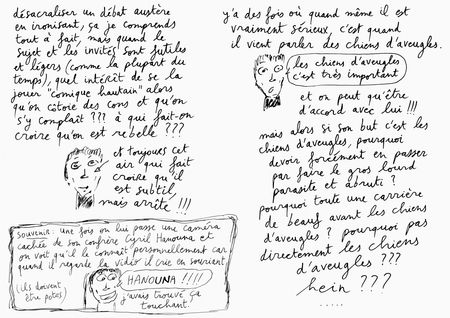 désacraliser un débat austère
en ironisant, ça je comprends
tout à fait, mais quand le
sujet et les invités sont futiles
et légers (comme la plupart du
temps), quel intérêt de se la
jouer "comique hautain" alors
qu'on côtoie des cons et qu'on
s'y complaît ??? à qui fait-on
croire qu'on est rebelle ???
et toujours cet
air qui fait
croire qu'il
est subtil,
mais arrête !!!
SOUVENIR : une fois on lui passe une caméra
cachée de son confrère Cyril Hanouna et
on voit qu'il le connaît personnellement car
quand il regarde la vidéo il crie en souriant
HANOUNA !!!!
(ils doivent
être potes)
j'avais trouvé ça
touchant.
y'a des fois où quand même il est
vraiment sérieux, c'est quand
il vient parler des chiens d'aveugles.
les chiens d'aveugles
c'est très important
et on peut qu'être
d'accord avec lui !!!
mais alors si son but c'est les
chiens d'aveugles, pourquoi
devoir forcément en passer
par faire le gros lourd
parasite et abruti ?
pourquoi toute une carrière
de beauf avant les chiens
d'aveugles ? pourquoi pas
directement les chiens
d'aveugles ???
hein ???
.....